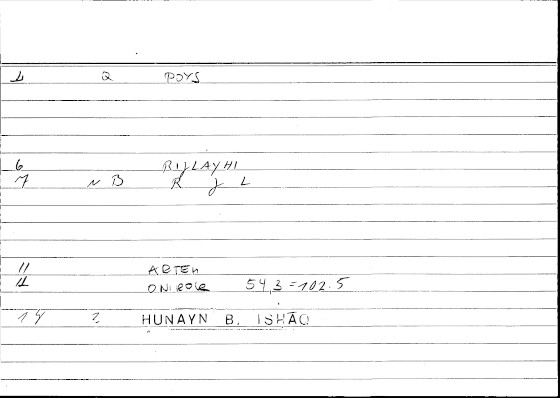 2 POYS
6 RIJLAYHI
7 N B R J L
11 ARTEM
12 ONIROCR 54,3 = 102.5
14 2 HUNAYN B. ISHĀQ